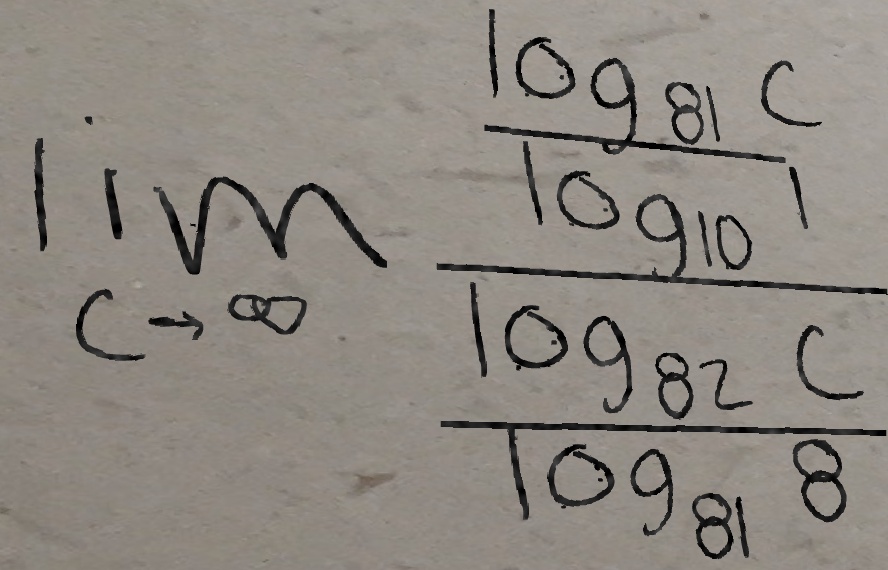 lim
C→∞
log₈₁ C
log₁₀ 1
log₈₂ C
log₈₁ 8